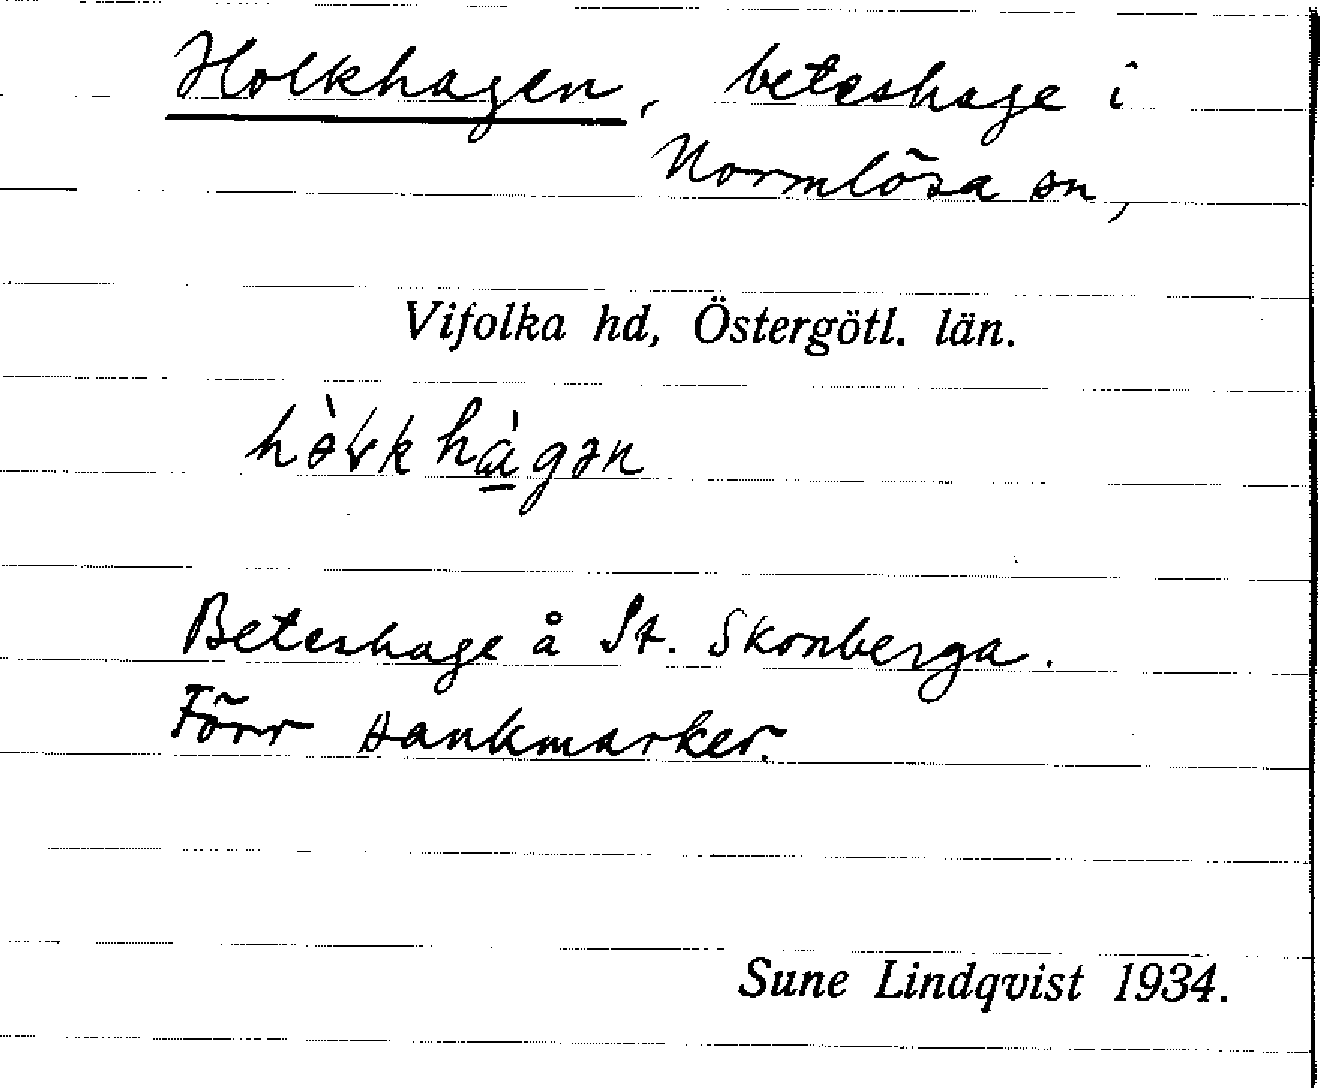 Holkhagen, beteshage i
Normlösa sn,
Vifolka hd, Östergötl. län.
Beteshage å St. Skonberga.
Förr sankmarker.
Sune Lindqvist 1934.